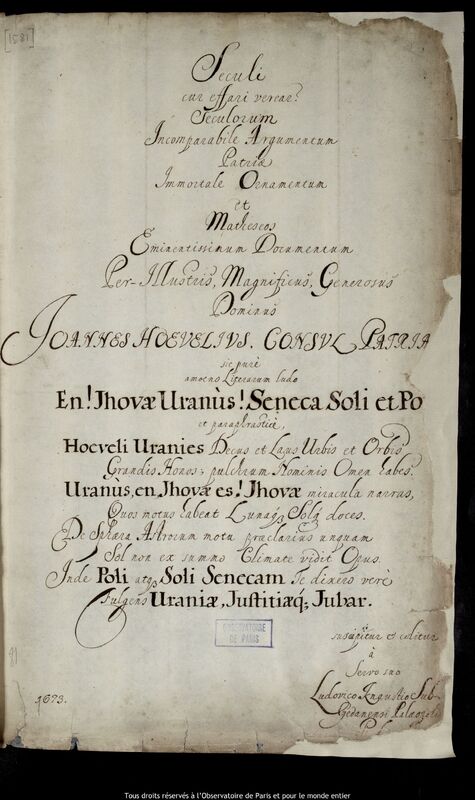 [1581]
Seculi
cur effari verear?
Seculorum
Incomparabile Argumentum
Patriæ
Immortale Ornamentum
et
Matheseos
Eminentissimum Documentum
Per-Illustris, Magnificus, Generosus
Dominus
JOANNES HOEVELIVS. CONSVL PATRIÆ
sic purè
amoeno Literarum ludo
En! Jhovæ Uranùs! Seneca Soli et Po
et paraphrasticè,
Hoeveli Uranies Decus et Laus Urbis et Orbis
Grandis Honos; pulchrum Nominis Omen habes.
Uranùs, en, Jhovæ es! Jhovæ miracula narras,
Quos motus habeat Lunaq; Solq; doces.
De Sphæra Astrorum motu præclarius unquam
Sol non ex summo Climate vidit Opus.
Inde Poli atq; Soli Senecam Te dixero verè
Fulgens Uraniæ, Justitiæq; Jubar.
OBSERVATOIRE
DE PARIS
suscipitur et colitur
à
Servo suo
Ludovico
Gedanensi
81
1673.
Tous droits réservés à l'Observatoire de Paris et pour le monde entier